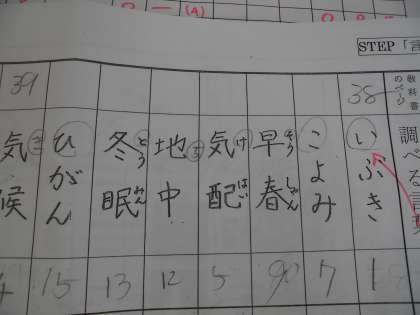 (A)
STEP「言
教科書
のページ
調べる言葉
38
39
いぶき
1
こよみ
7
早春
そうしゅん
90
気配
けはい
5
地中
ち
12
冬眠
とうみん
13
ひがん
15
気候
き
4